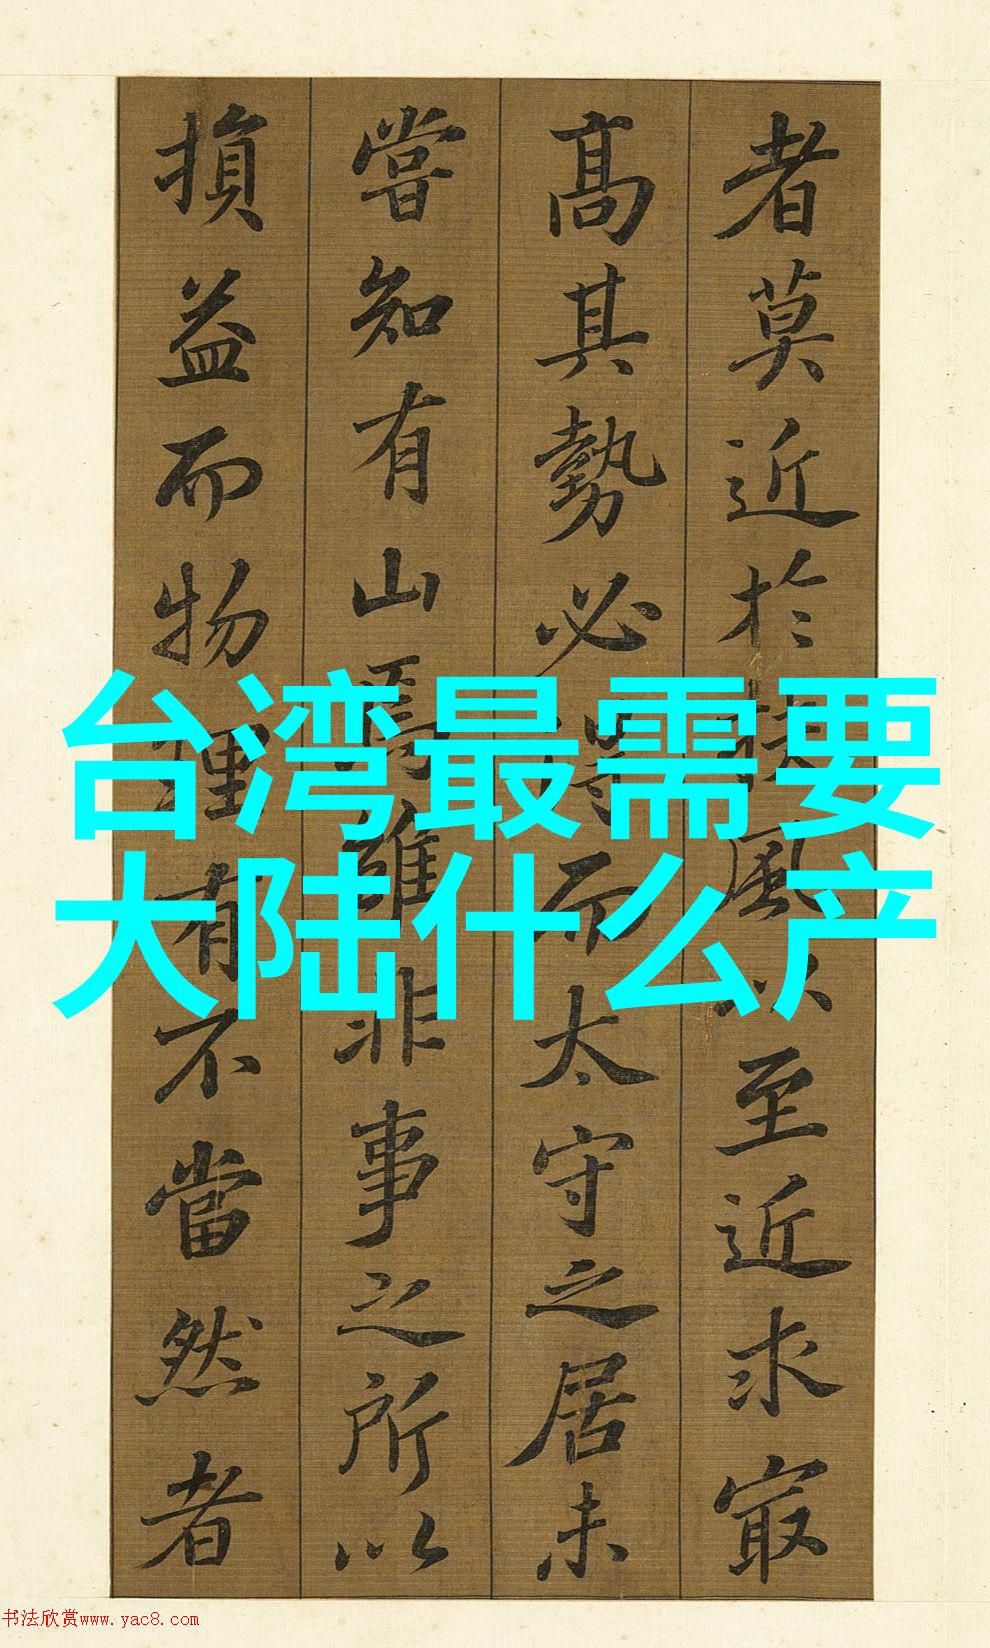 者莫近於扶風以至近求㝡
髙其勢必得而太守之居未
嘗知有山焉雖非事之所以
損益而物理有不當然者
台湾最需要
大陆什么产
书法欣赏www.yac8.com